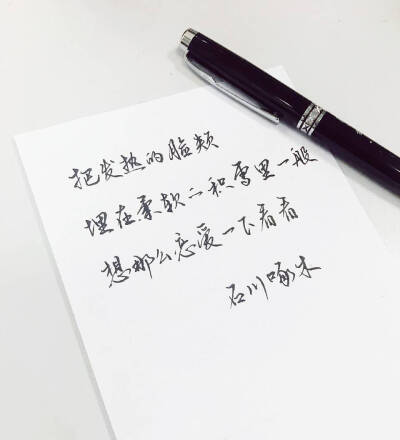 把发热的脸颊
埋在柔软之积雪里一般
想那么恋爱一下看看
石川啄木